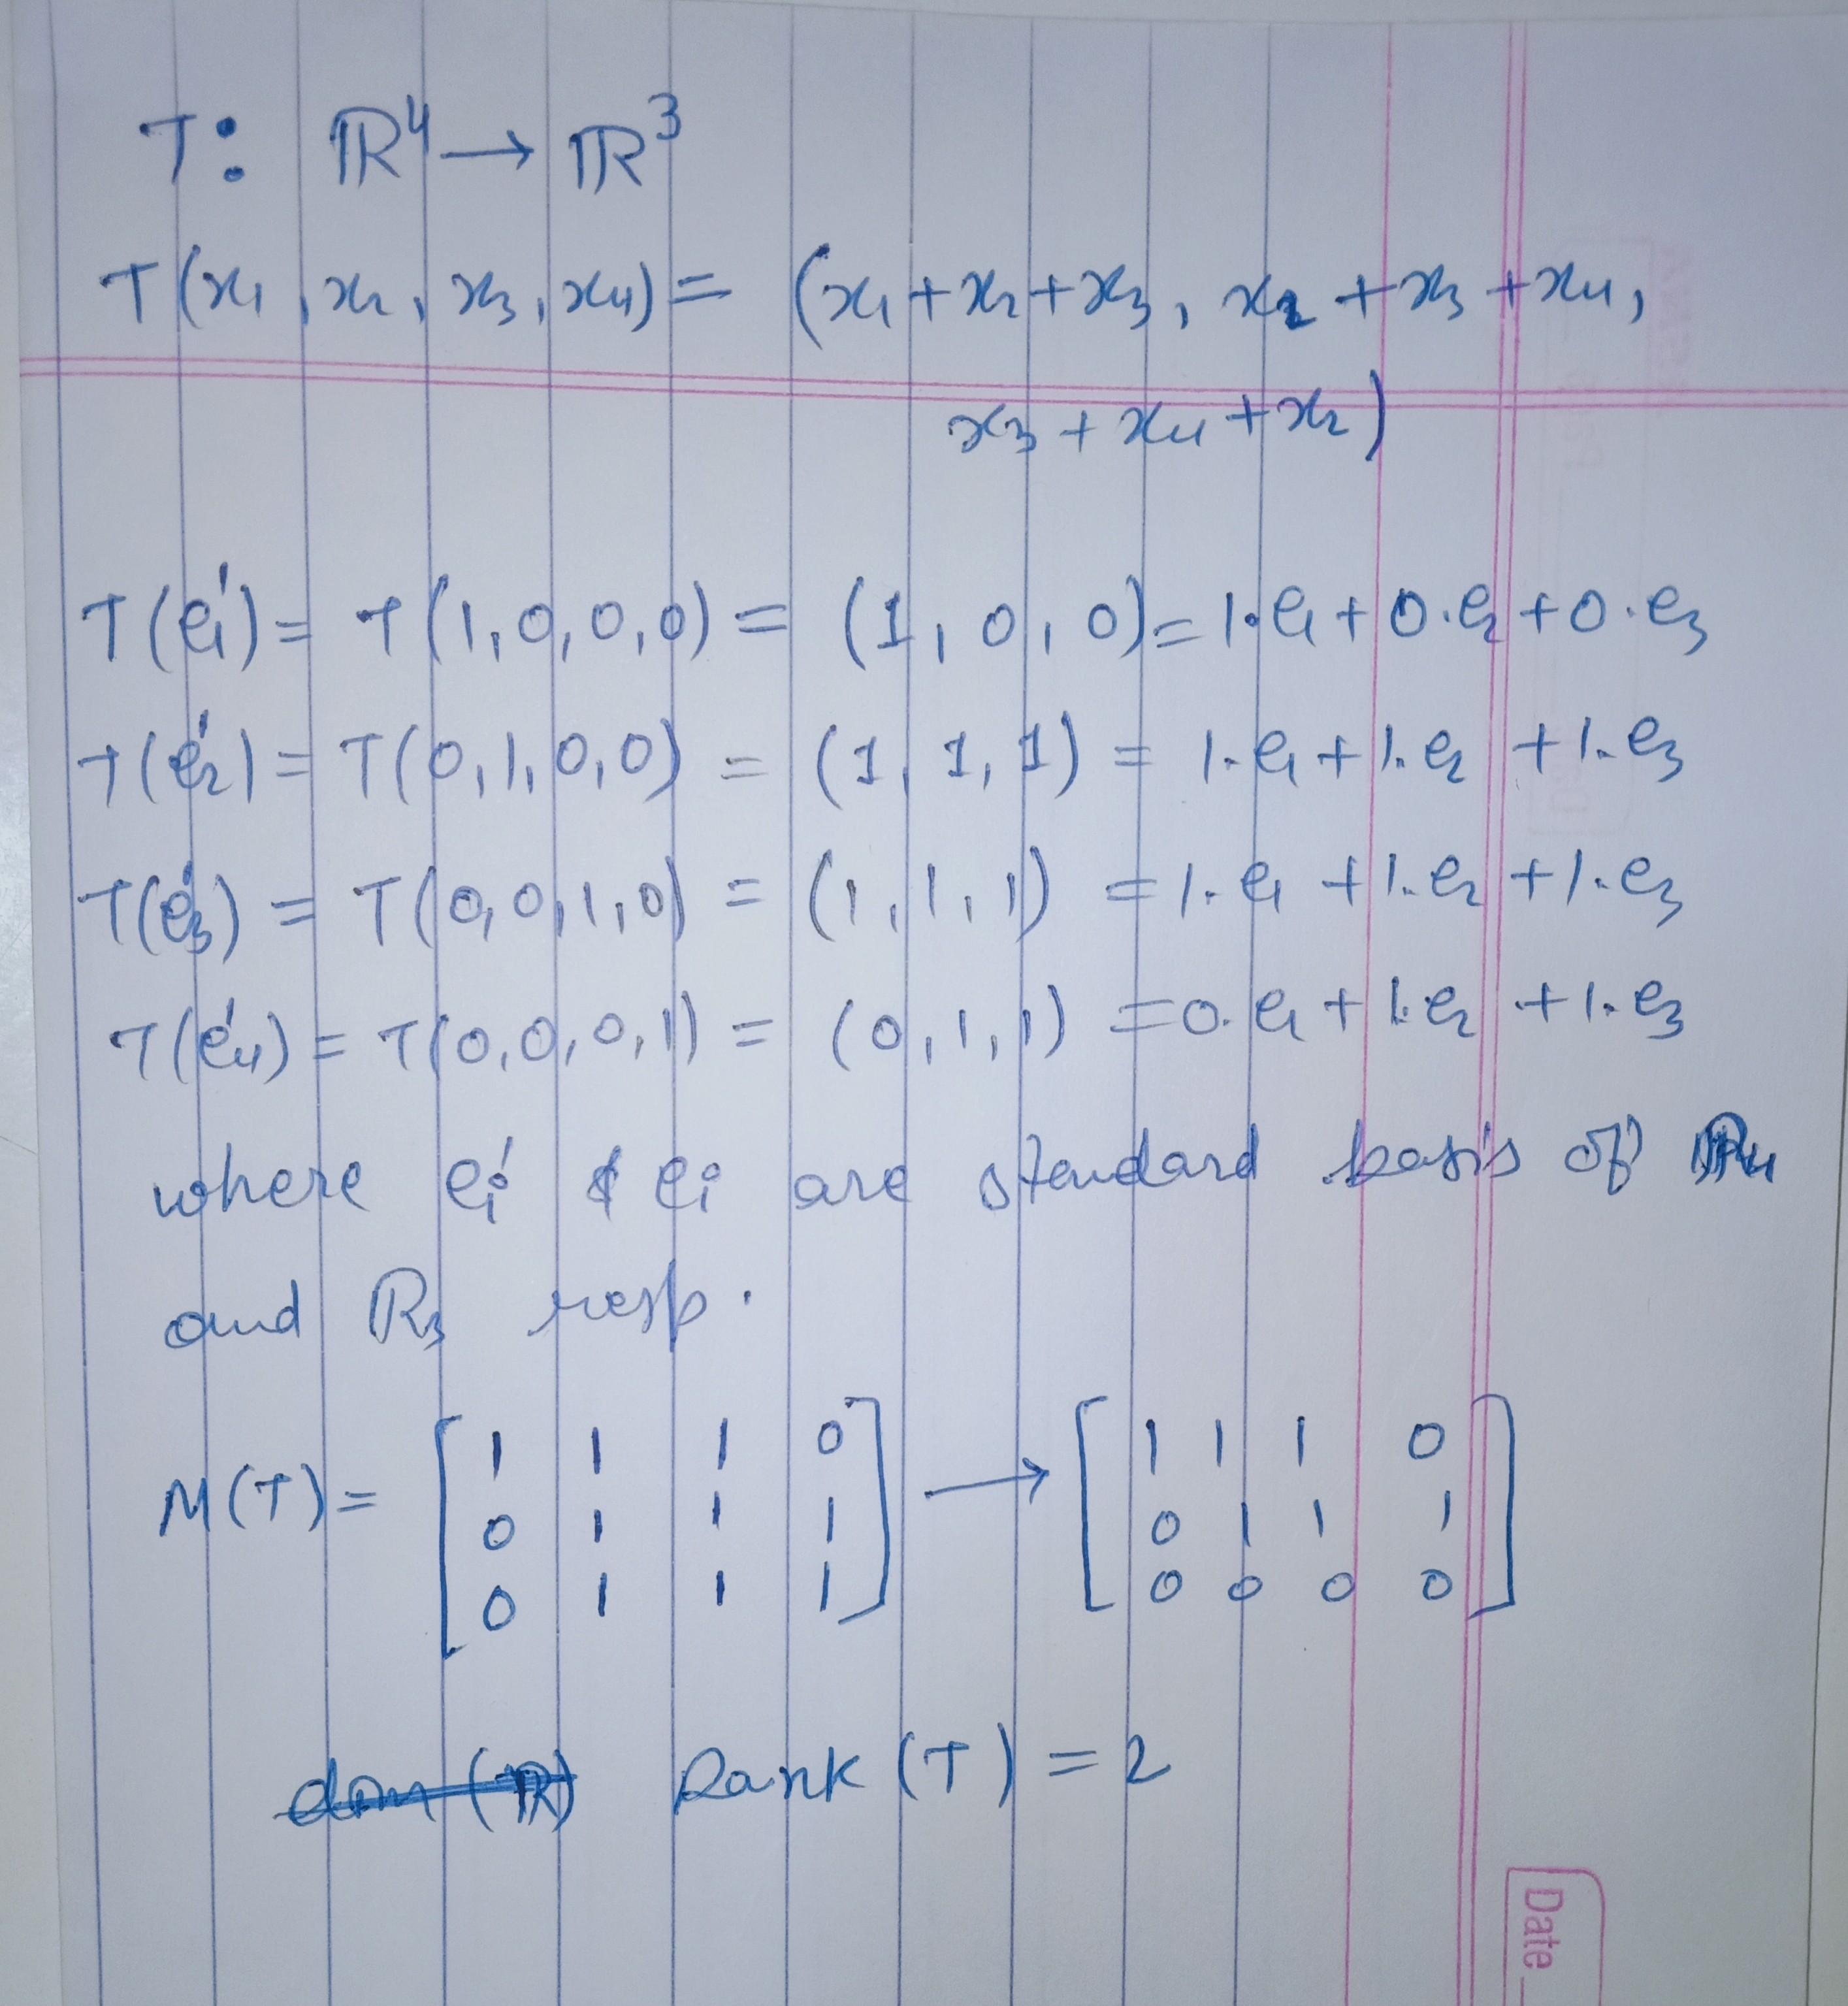 T: ℝ⁴ → ℝ³
T(x₁, x₂, x₃, x₄) = (x₁+x₂+x₃, x₂+x₃+x₄,
x₃+x₄+x₂)
T(e₁') = T(1,0,0,0) = (1,0,0) = 1·e₁+0·e₂+0·e₃
T(e₂') = T(0,1,0,0) = (1,1,1) = 1·e₁+1·e₂+1·e₃
T(e₃') = T(0,0,1,0) = (1,1,1) = 1·e₁+1·e₂+1·e₃
T(e₄') = T(0,0,0,1) = (0,1,1) = 0·e₁+1·e₂+1·e₃
where eᵢ' & eᵢ are standard basis of ℝ₄
and ℝ₃ resp.
M(T) = [1 1 1 0; 0 1 1 1; 0 1 1 1] → [1 1 1 0; 0 1 1 1; 0 0 0 0]
Rank(T) = 2
Date